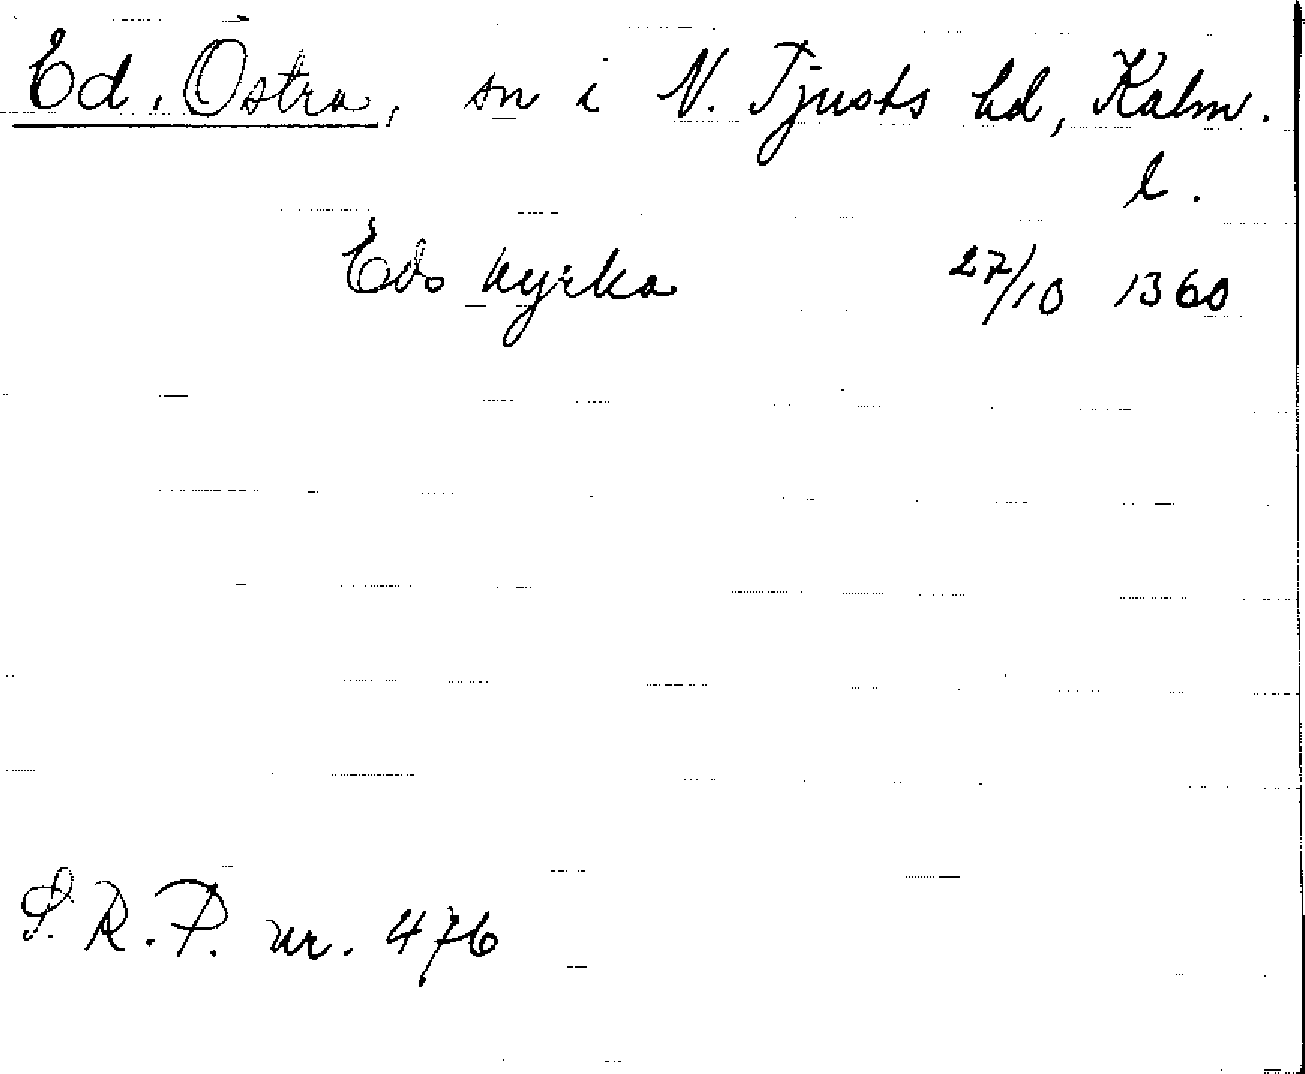 Ed, Östra, sn i N. Tjusts hd, Kalm.
l.
Eds kyrka 27/10 1360
S.R.P. nr. 476